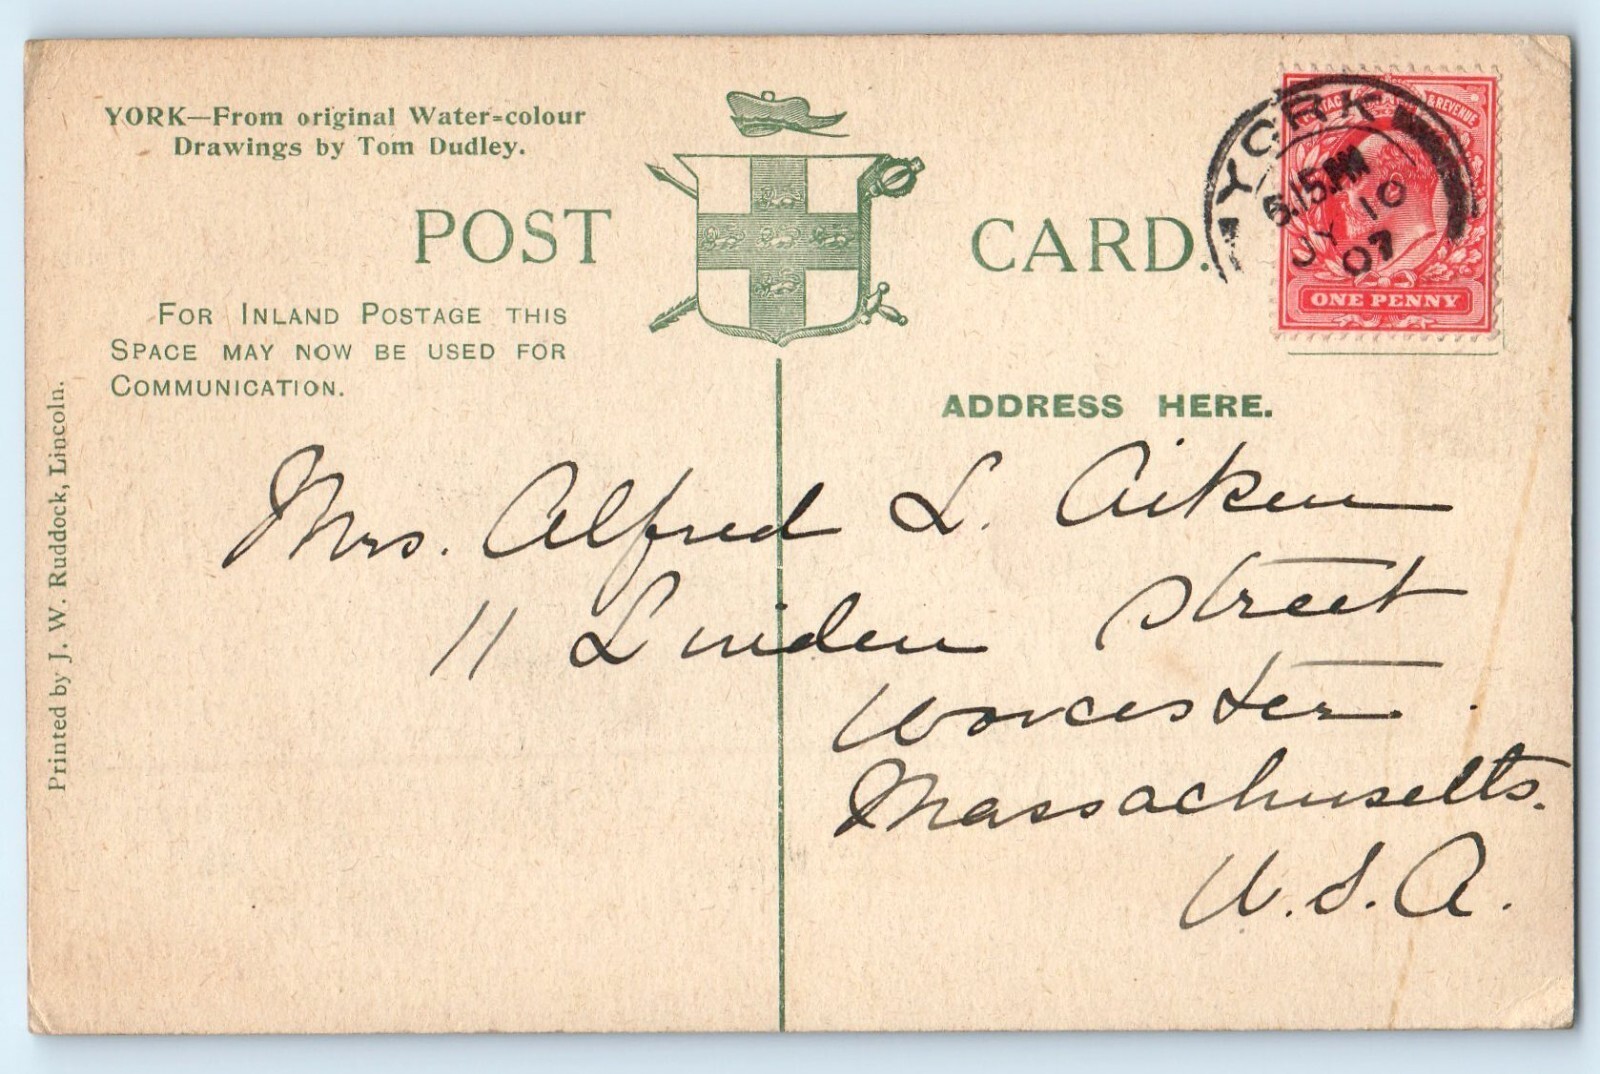 YORK—From original Water-colour
Drawings by Tom Dudley.
POST CARD.
FOR INLAND POSTAGE THIS
SPACE MAY NOW BE USED FOR
COMMUNICATION.
ADDRESS HERE.
Printed by J. W. Ruddock, Lincoln.
YORK
5.15 PM
JY 10
07
& REVENUE
ONE PENNY
Mrs. Alfred L. Aiken
11 Linden Street
Worcester.
Massachusetts.
U.S.A.